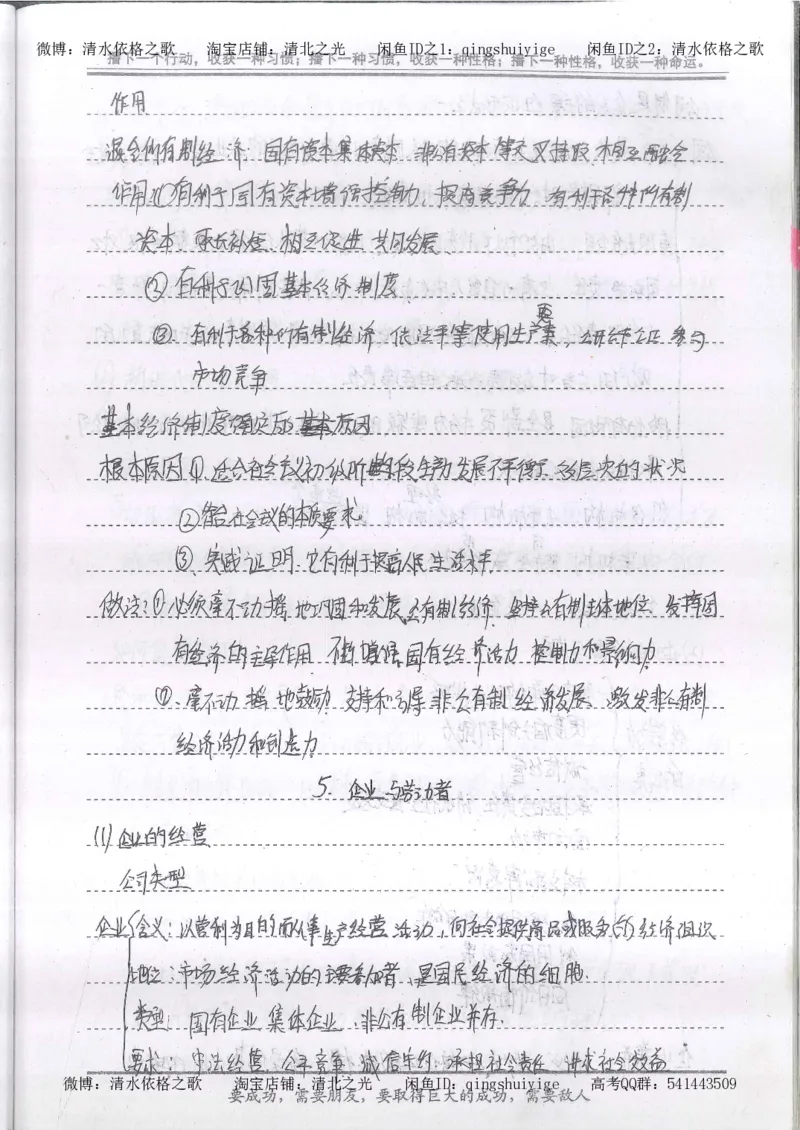 微博：清水依格之歌 淘宝店铺：清北之光 闲鱼ID之1：qingshuiyige 闲鱼ID之2：清水依格之歌
播下一个行动，收获一种习惯；播下一种习惯，收获一种性格；播下一种性格，收获一种命运。
作用
混合所有制经济：国有资本集体资本、非公有资本等交叉持股、相互融合
作用：①有利于国有资本增强控制力，提高竞争力，有利于各种所有制
资本取长补短、相互促进、共同发展
②有利于巩固基本经济制度
③有利于各种所有制经济依法平等使用生产要素，公开公平公正参与
市场竞争
基本经济制度确定的基本原因
根本原因①适合社会主义初级阶段生产力发展不平衡、多层次的状况
②符合社会主义的本质要求
③实践证明，它有利于提高人民生活水平
做法：①必须毫不动摇地巩固和发展公有制经济，坚持公有制主体地位，发挥国
有经济的主导作用，不断增强国有经济活力、控制力和影响力
②毫不动摇地鼓励、支持和引导非公有制经济发展，激发非公有制
经济活力和创造力
5. 企业与劳动者
(1)企业的经营
公司类型
企业 含义：以营利为目的而从事生产经营活动，向社会提供商品或服务的经济组织
地位：市场经济活动的主要参加者，是国民经济的细胞
类型：国有企业 集体企业、非公有制企业并存
要求：守法经营、公平竞争、诚信守约、承担社会责任、讲求社会效益
微博：清水依格之歌 淘宝店铺：清北之光 闲鱼ID：qingshuiyige 高考QQ群：541443509
要成功，需要朋友，要取得巨大的成功，需要敌人